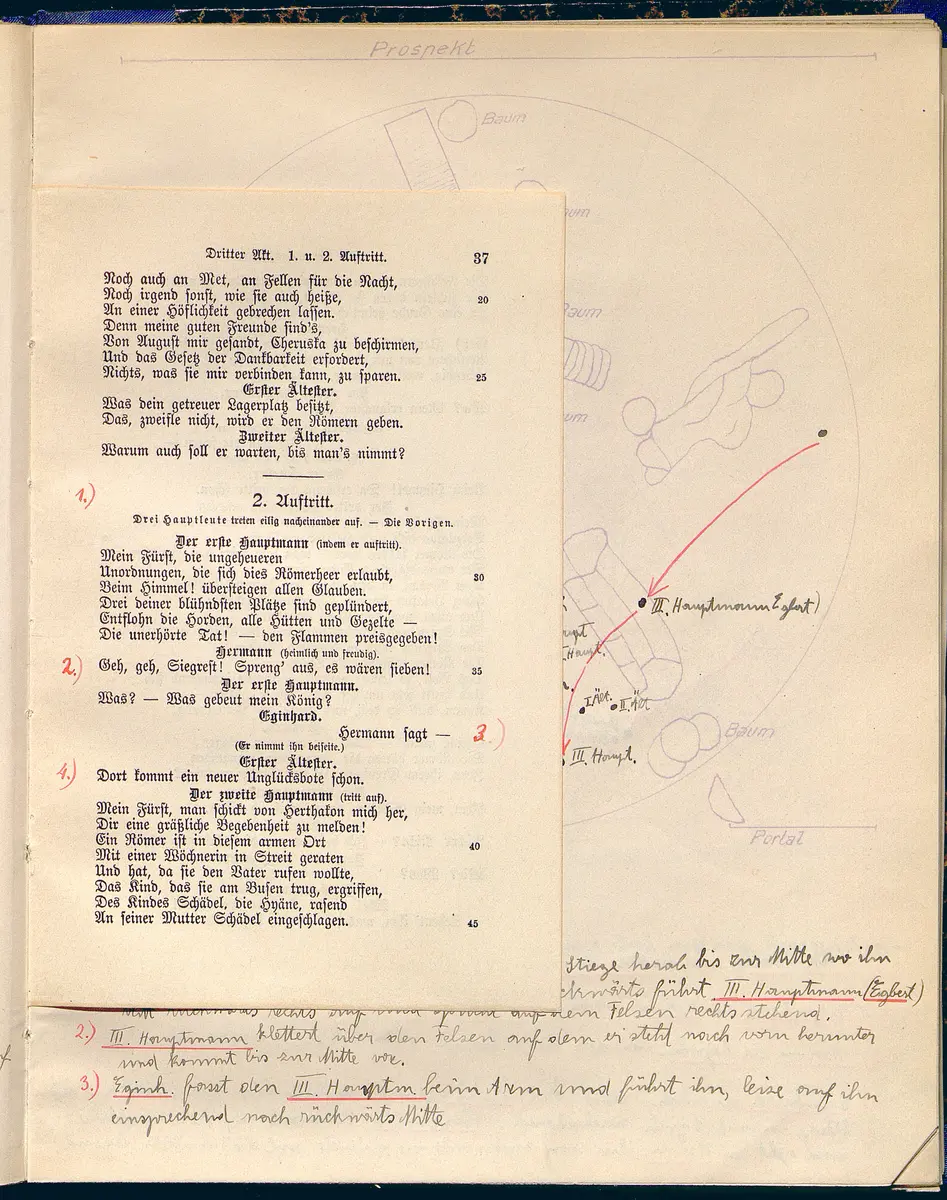 Prospekt
Baum
aum
Baum
um
Dritter Akt. 1. u. 2. Auftritt. 37
Noch auch an Met, an Fellen für die Nacht,
Noch irgend sonst, wie sie auch heiße, 20
An einer Höflichkeit gebrechen lassen.
Denn meine guten Freunde sind's,
Von August mir gesandt, Cheruska zu beschirmen,
Und das Gesetz der Dankbarkeit erfordert,
Nichts, was sie mir verbinden kann, zu sparen. 25
Erster Ältester.
Was dein getreuer Lagerplatz besitzt,
Das, zweifle nicht, wird er den Römern geben.
Zweiter Ältester.
Warum auch soll er warten, bis man's nimmt?
1.)
2. Auftritt.
Drei Hauptleute treten eilig nacheinander auf. — Die Vorigen.
Der erste Hauptmann (indem er auftritt).
Mein Fürst, die ungeheueren
Unordnungen, die sich dies Römerheer erlaubt, 30
Beim Himmel! übersteigen allen Glauben.
Drei deiner blühndsten Plätze sind geplündert,
Entflohn die Horden, alle Hütten und Gezelte —
Die unerhörte Tat! — den Flammen preisgegeben!
Hermann (heimlich und freudig).
2.) Geh, geh, Siegrest! Spreng' aus, es wären sieben! 35
Der erste Hauptmann.
Was? — Was gebeut mein König?
Eginhard.
Hermann sagt — 3.)
(Er nimmt ihn beiseite.)
Erster Ältester.
4.) Dort kommt ein neuer Unglücksbote schon.
Der zweite Hauptmann (tritt auf).
Mein Fürst, man schickt von Herthakon mich her,
Dir eine gräßliche Begebenheit zu melden!
Ein Römer ist in diesem armen Ort 40
Mit einer Wöchnerin in Streit geraten
Und hat, da sie den Vater rufen wollte,
Das Kind, das sie am Busen trug, ergriffen,
Des Kindes Schädel, die Hyäne, rasend
An seiner Mutter Schädel eingeschlagen. 45
III. Hauptmann Egbert)
Haupt.
I Ält. II. Ält
III Haupt.
Baum
Portal
Stiege herab bis zur Mitte wo ihn
ckwärts führt III. Hauptmann (Egbert)
rechts auf dem Felsen rechts stehend.
2.) III. Hauptmann klettert über den Felsen auf dem er steht nach vorn herunter
und kommt bis zur Mitte vor.
3.) Eginh. fasst den III. Hauptm. beim Arm und führt ihn, leise auf ihn
einsprechend nach rückwärts Mitte